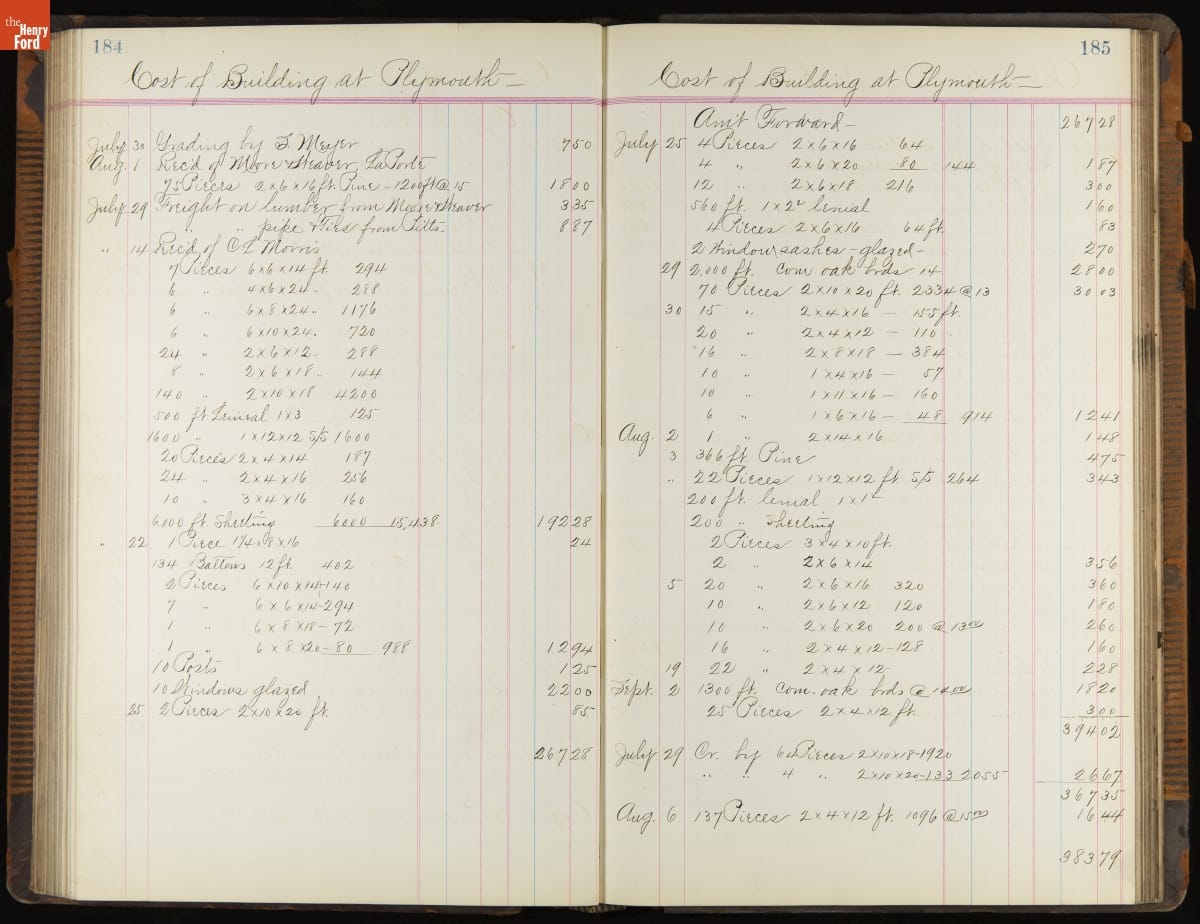 the Henry Ford
184
Cost of Building at Plymouth—
July 30 Grading by F. Meyer 750
Aug. 1 Rec'd of Moore & Weaver, LaPorte
75 Pieces 2x6x16 ft. Pine - 1200 ft @ 15 1800
July 29 Freight on lumber from Moore & Weaver 335
" " pipe & Ties from Pitts. 887
" 14 Rec'd of C L Morris
7 Pieces 6x6x14 ft. 294
6 " 4x6x24 " 288
6 " 6x8x24 " 1176
6 " 6x10x24 " 720
24 " 2x6x12 " 288
8 " 2x6x18 " 144
140 " 2x10x18 4200
500 ft Lineal 1x3 125
1600 " 1x12x12 S/S 1600
20 Pieces 2x4x14 187
24 " 2x4x16 256
10 " 3x4x16 160
6,000 ft. Sheeting 6000 15,438 19228
" 22 1 Piece 1¼x8x16 24
134 Battons 12 ft. 402
2 Pieces 6x10x14-140
7 " 6x6x14-294
1 " 6x8x18-72
1 " 6x8x20-80 988 1294
10 Posts 125
10 Windows glazed 2200
25 2 Pieces 2x10x20 ft. 85
26728
185
Cost of Building at Plymouth—
Amt Forward— 26728
July 25 4 Pieces 2x6x16 64
4 " 2x6x20 80 144 187
12 " 2x6x18 216 300
560 ft. 1x2" lenial 160
4 Pieces 2x6x16 64 ft. 83
2 Window sashes - glazed - 270
29 2,000 ft. com. oak brds 14 2800
70 Pieces 2x10x20 ft. 2334 @ 13 3003
30 15 " 2x4x16 — 155 ft.
20 " 2x4x12 — 110
16 " 2x8x18 — 384
10 " 1x4x16 — 57
10 " 1x11x16 — 160
6 " 1x6x16 — 48 914 1241
Aug. 2 1 " 2x14x16 148
3 366 ft. Pine 475
" 22 Pieces 1x12x12 ft S/S 264 343
200 ft. lenial 1x1"
200 " Sheeting
2 Pieces 3x4x10 ft.
2 " 2x6x14 356
5 20 " 2x6x16 320 360
10 " 2x6x12 120 180
10 " 2x6x20 200 @ 13 00 260
16 " 2x4x12-128 160
19 22 " 2x4x12- 228
Sept. 2 1300 ft. com. oak brds @ 14 00 1820
25 Pieces 2x4x12 ft. 300
39402
July 29 Cr. by 64 Pieces 2x10x18-1920
" " " 4 " 2x10x20-133 2055 2667
36735
Aug. 6 137 Pieces 2x4x12 ft. 1096 @ 15 00 1644
38379